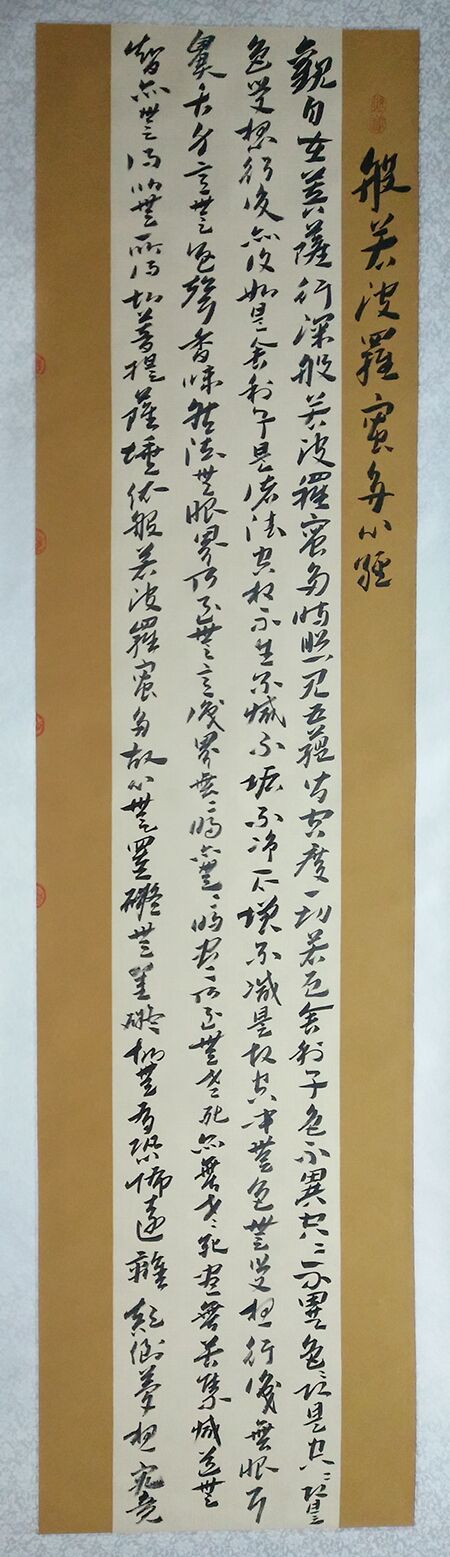 般若波羅蜜多心經
觀自在菩薩行深般若波羅蜜多時照見五蘊皆空度一切苦厄舍利子色不異空〻不異色〻即是空〻即是
色受想行識亦復如是舍利子是諸法空相不生不滅不垢不淨不增不減是故空中無色無受想行識無眼耳
鼻舌身意無色聲香味觸法無眼界乃至無意識界無〻明亦無〻明盡乃至無老死亦無老死盡無苦集滅道無
智亦無得以無所得故菩提薩埵依般若波羅蜜多故心無罣礙無罣礙故無有恐怖遠離顛倒夢想究竟